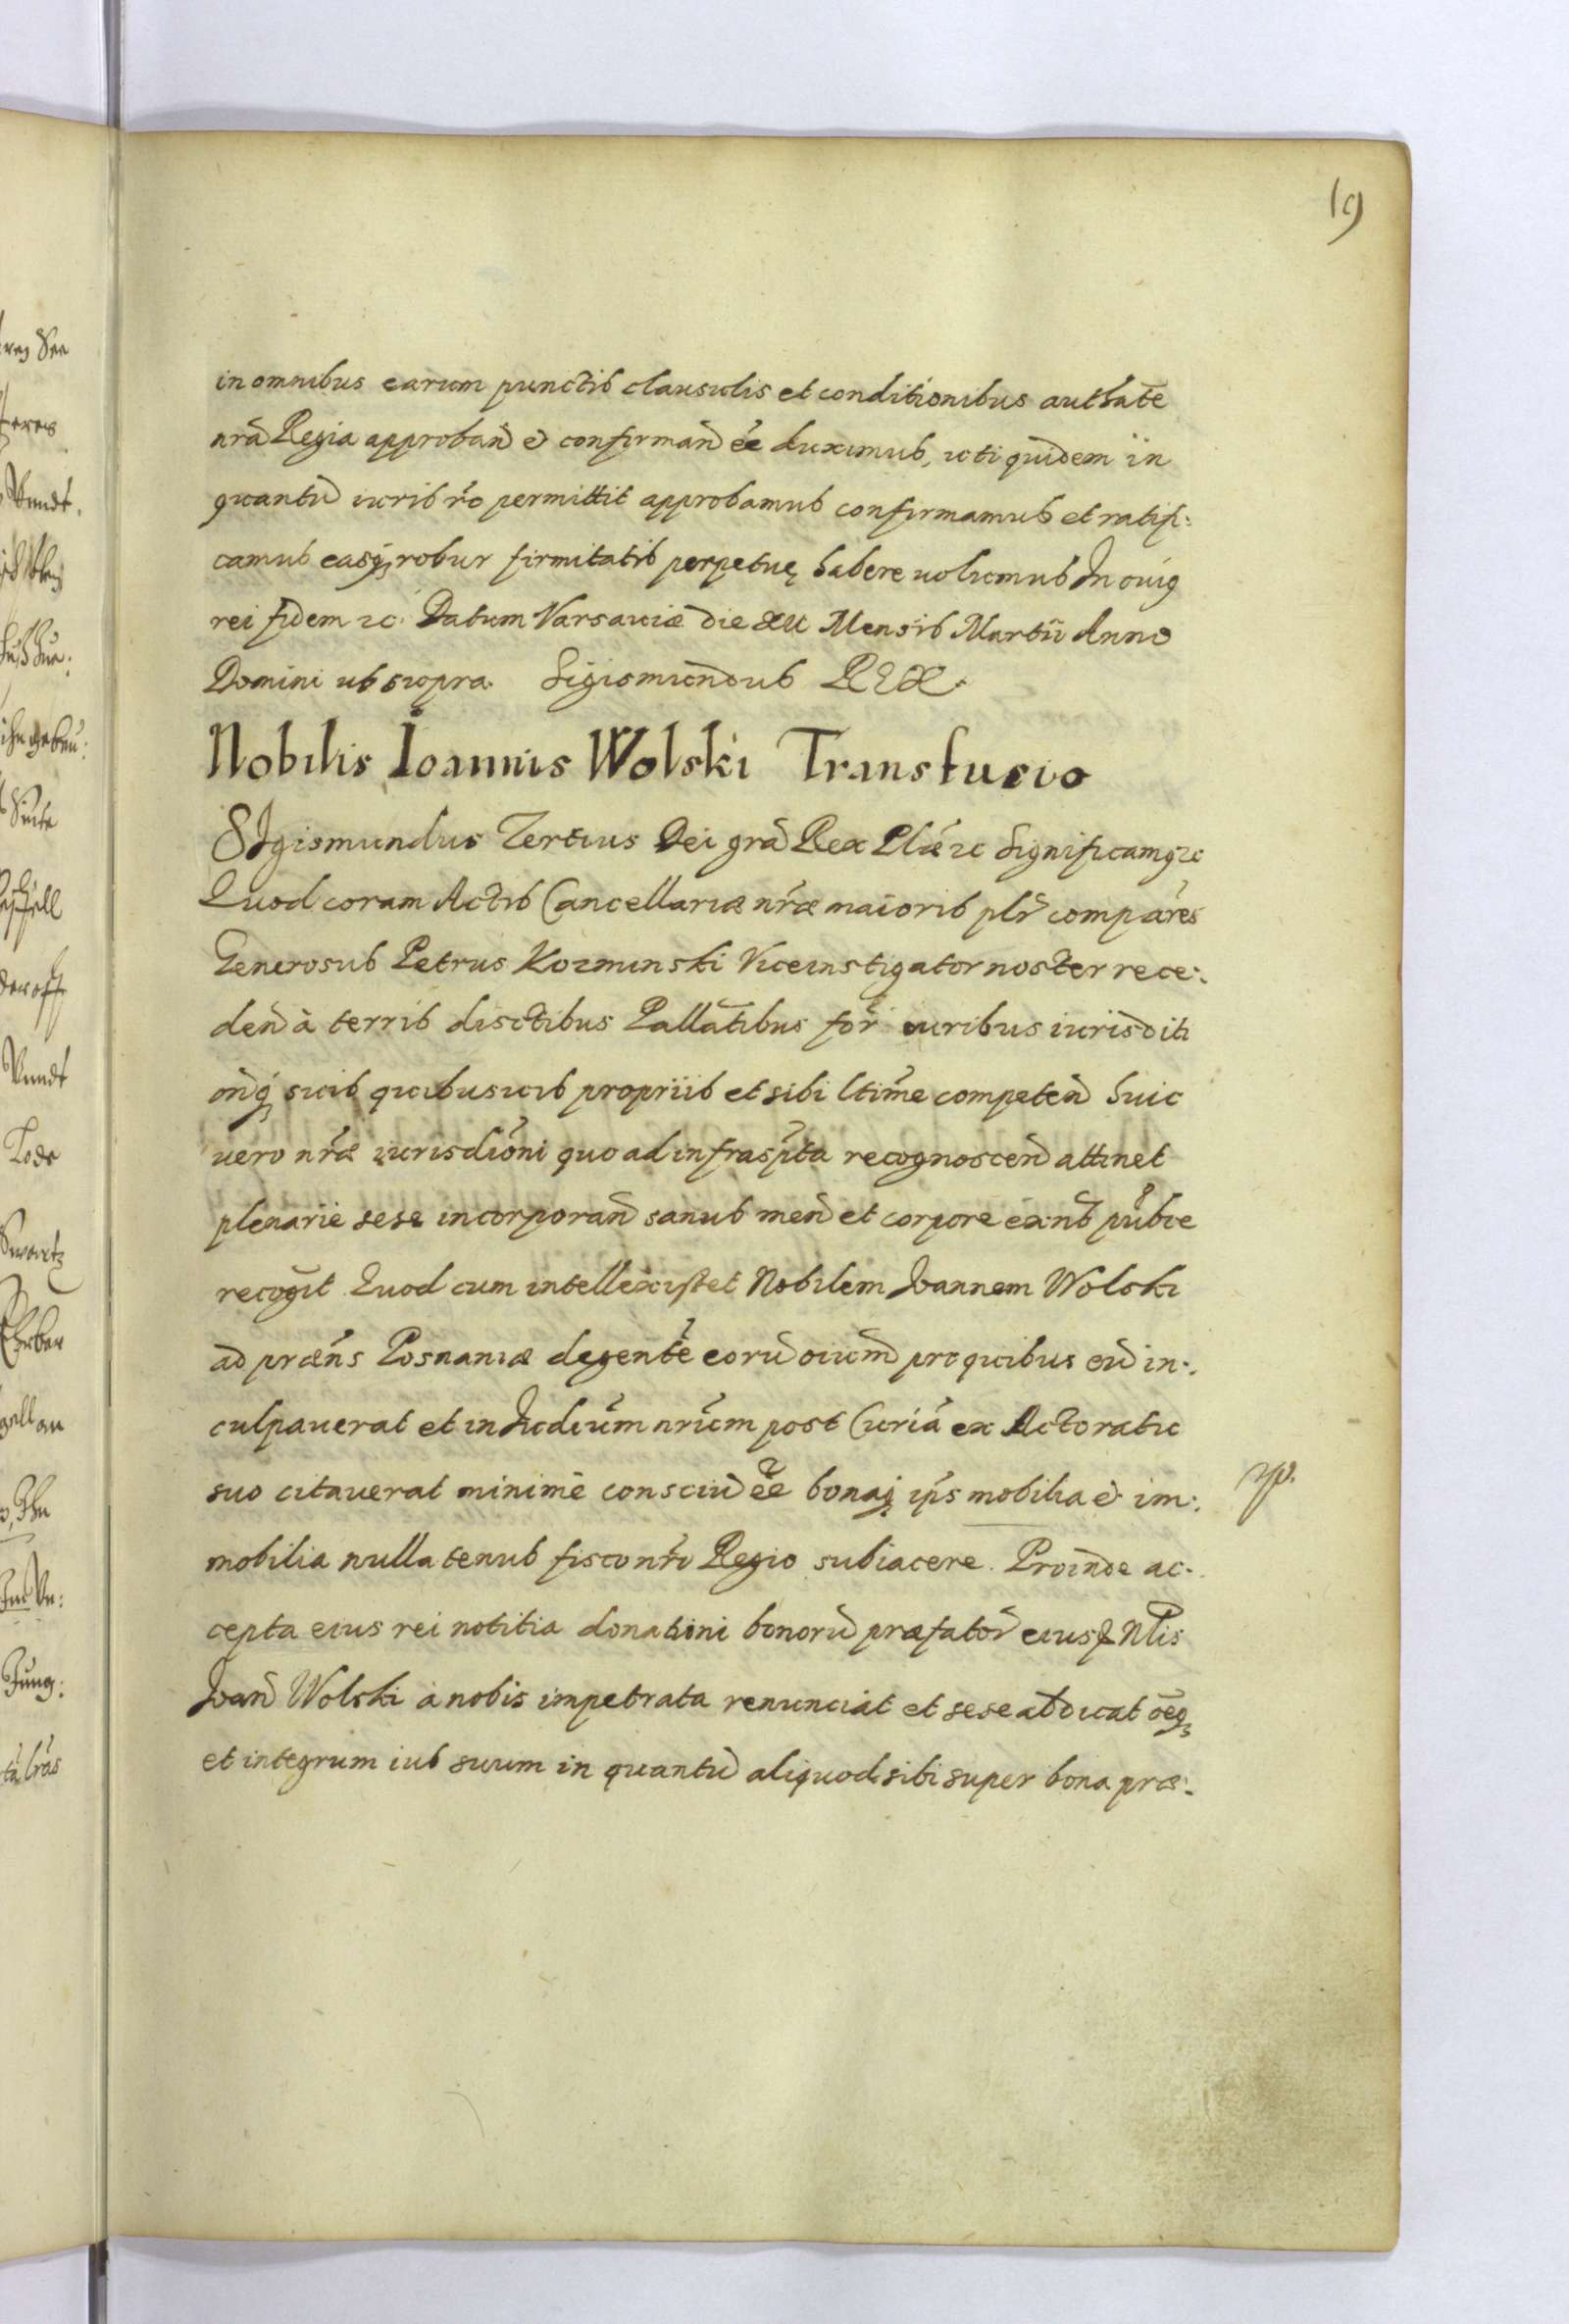 19
in omnibus earum punctis clausulis et conditionibus authāte
nrā Regia approban̄ & confirman̄ ēē duximus, uti quidem in
quantū iuris rō permittit approbamus confirmamus et ratifi:
camus easq; robur firmitatis perpetuę habere uolumus In cuiq
rei fidem ꝛc. Datum Varsauiæ die XII Mensis Martii Anno
Domini ut supra. Sigismundus REX.
Nobilis Ioannis Wolski Transfusio
SIgismundus Tertius Dei grā Rex Pliæ ꝛc Significamq ꝛc
Quod coram Actis Cancellariæ nr̄æ maioris plr̄ compārēs
Generosus Petrus Kozminski Viceinstigator noster rece:
den̄ à terris disctibus Pallātibus for̄ iuribus iurisditi
on̄q; suis quibusuis propriis et sibi ltīme competen̄ huic
uero nr̄æ iurisdīoni quo ad infrasp̄ta recognoscen̄ attinet
plenarie sese incorporan̄ sanus men̄ et corpore exn̄s pub̄ce
recog̅it Quod cum intellexisset Nobilem Ioannem Wolski
ad præn̄s Posnaniæ degentē eorū oium̄ pro quibus eū in:
culpauerat et in Iudiūm nrūm post Curiā ex Actoratu
suo citauerat minimè consciū ēē bonaq; ip̄s mobilia & im:
mobilia nullatenus fisco nr̄o Regio subiacere. Proinde ac:
cepta eius rei notitia donationi bonorū præfator̄ eiusd Nblis
Ioan̄ Wolski à nobis impetrata renunciat et sese abdicat ōeq;
et integrum ius suum in quantū aliquod sibi super bona præ: